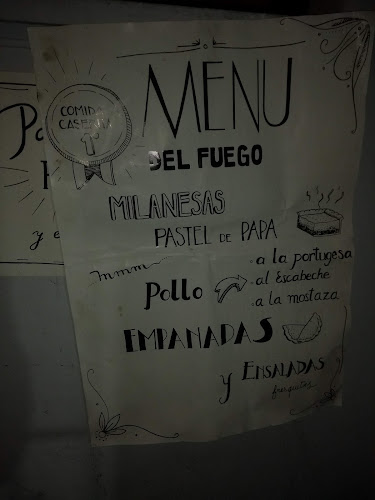 COMIDA
CASERA
MENU
DEL FUEGO
MILANESAS
PASTEL DE PAPA
mmmm
Pollo
. a la portugesa
. al Escabeche
. a la mostaza
EMPANADAS
y ENSALADAS
fresquitas
y